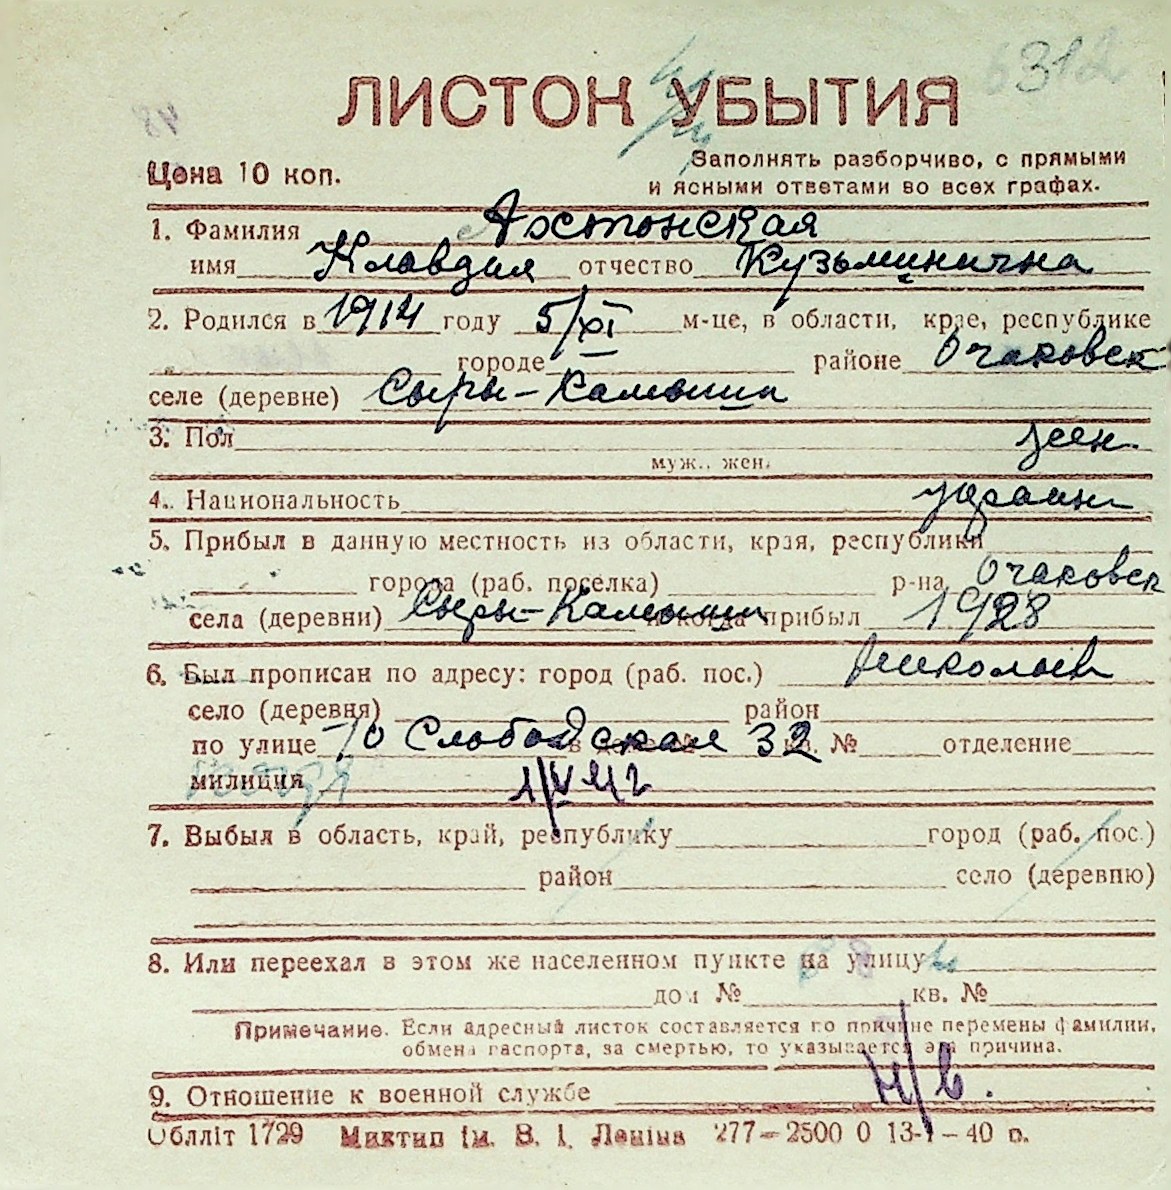 6312
ЛИСТОК УБЫТИЯ
48
Цена 10 коп.
Заполнять разборчиво, с прямыми
и ясными ответами во всех графах.
1. Фамилия Ахтонская
имя Клавдия отчество Кузьминична
2. Родился в 1914 году 5/XI м-це, в области, крае, республике
городе районе Очаковск
селе (деревне) Сыры-Камыши
3. Пол жен.
муж., жен.
4. Национальность украин
5. Прибыл в данную местность из области, края, республики
города (раб. поселка) р-на Очаковск
села (деревни) Сыры-Камыши и когда прибыл 1928
6. Был прописан по адресу: город (раб. пос.) Николаев
село (деревня) район
по улице 10 Слободская 32 кв. № отделение
милиция 1/V 41 г
7. Выбыл в область, край, республику город (раб. пос.)
район село (деревню)
8. Или переехал в этом же населенном пункте на улицу
дом № кв. №
Примечание. Если адресный листок составляется по причине перемены фамилии,
обмена паспорта, за смертью, то указывается эта причина.
9. Отношение к военной службе н/в.
Облліт 1729 Миктип ім. В. І. Леніна 277—2500 0 13-1—40 р.